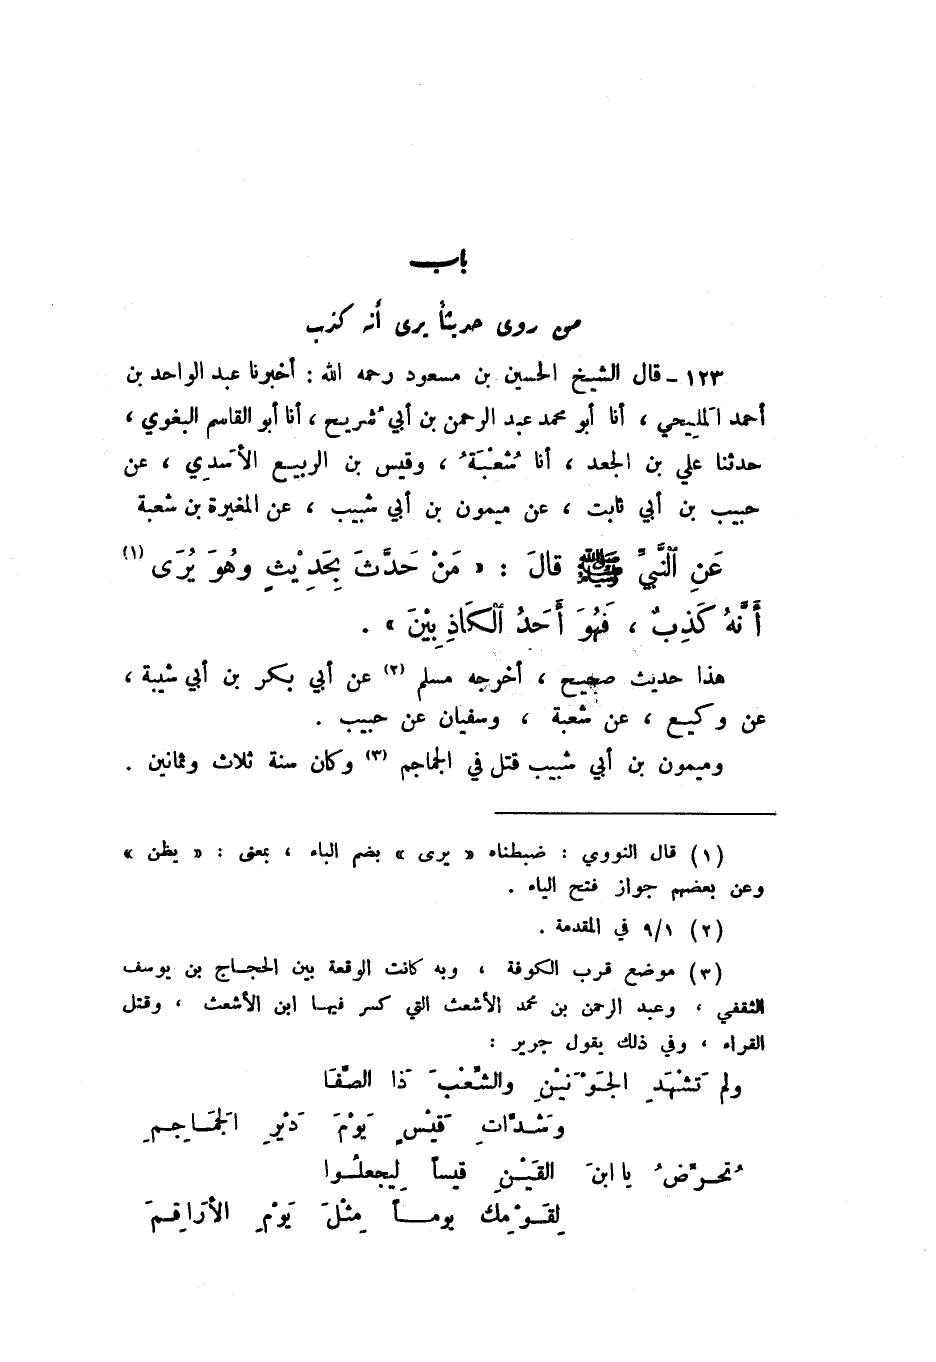 باب
من روى حديثاً يرى أنه كذب
١٢٣ – قال الشيخ الحسين بن مسعود رحمه الله : أخبرنا عبد الواحد بن
أحمد المليحي ، أنا أبو محمد عبد الرحمن بن أبي شُريح ، أنا أبو القاسم البغوي ،
حدثنا علي بن الجعد ، أنا شُعْبَةُ ، وقيس بن الربيع الأسَدِي ، عن
حبيب بن أبي ثابت ، عن ميمون بن أبي شبيب ، عن المغيرة بن شعبة
عَنِ ٱلنَّبِيِّ ﷺ قالَ : « مَنْ حَدَّثَ بِحَدِيْثٍ وهُوَ يُرَى (١)
أَنَّهُ كَذِبٌ ، فَهُوَ أَحَدُ ٱلكَاذِبِيْنَ » .
هذا حديث صحيح ، أخرجه مسلم (٢) عن أبي بكر بن أبي شيبة ،
عن وكيع ، عن شعبة ، وسفيان عن حبيب .
وميمون بن أبي شبيب قتل في الجماجم (٣) وكان سنة ثلاث وثمانين .
(١) قال النووي : ضبطناه « يرى » بضم الياء ، بمعنى : « يظن »
وعن بعضهم جواز فتح الياء .
(٢) ٩/١ في المقدمة .
(٣) موضع قرب الكوفة ، وبه كانت الوقعة بين الحجاج بن يوسف
الثقفي ، وعبد الرحمن بن محمد الأشعث التي كسر فيها ابن الأشعث ، وقتل
القراء ، وفي ذلك يقول جرير :
ولم تَشْهَدِ الجَوْنَيْنِ والشَّعْبَ ذا الصَّفَا
وشَدَّاتِ قَيْسٍ يَوْمَ دَيْرِ الجَمَاجِمِ
تُحرِّضُ يا ابنَ القَيْنِ قيساً لِيجعلُوا
لِقَوْمِكَ يوماً مِثْلَ يَوْمِ الأرَاقِمَ